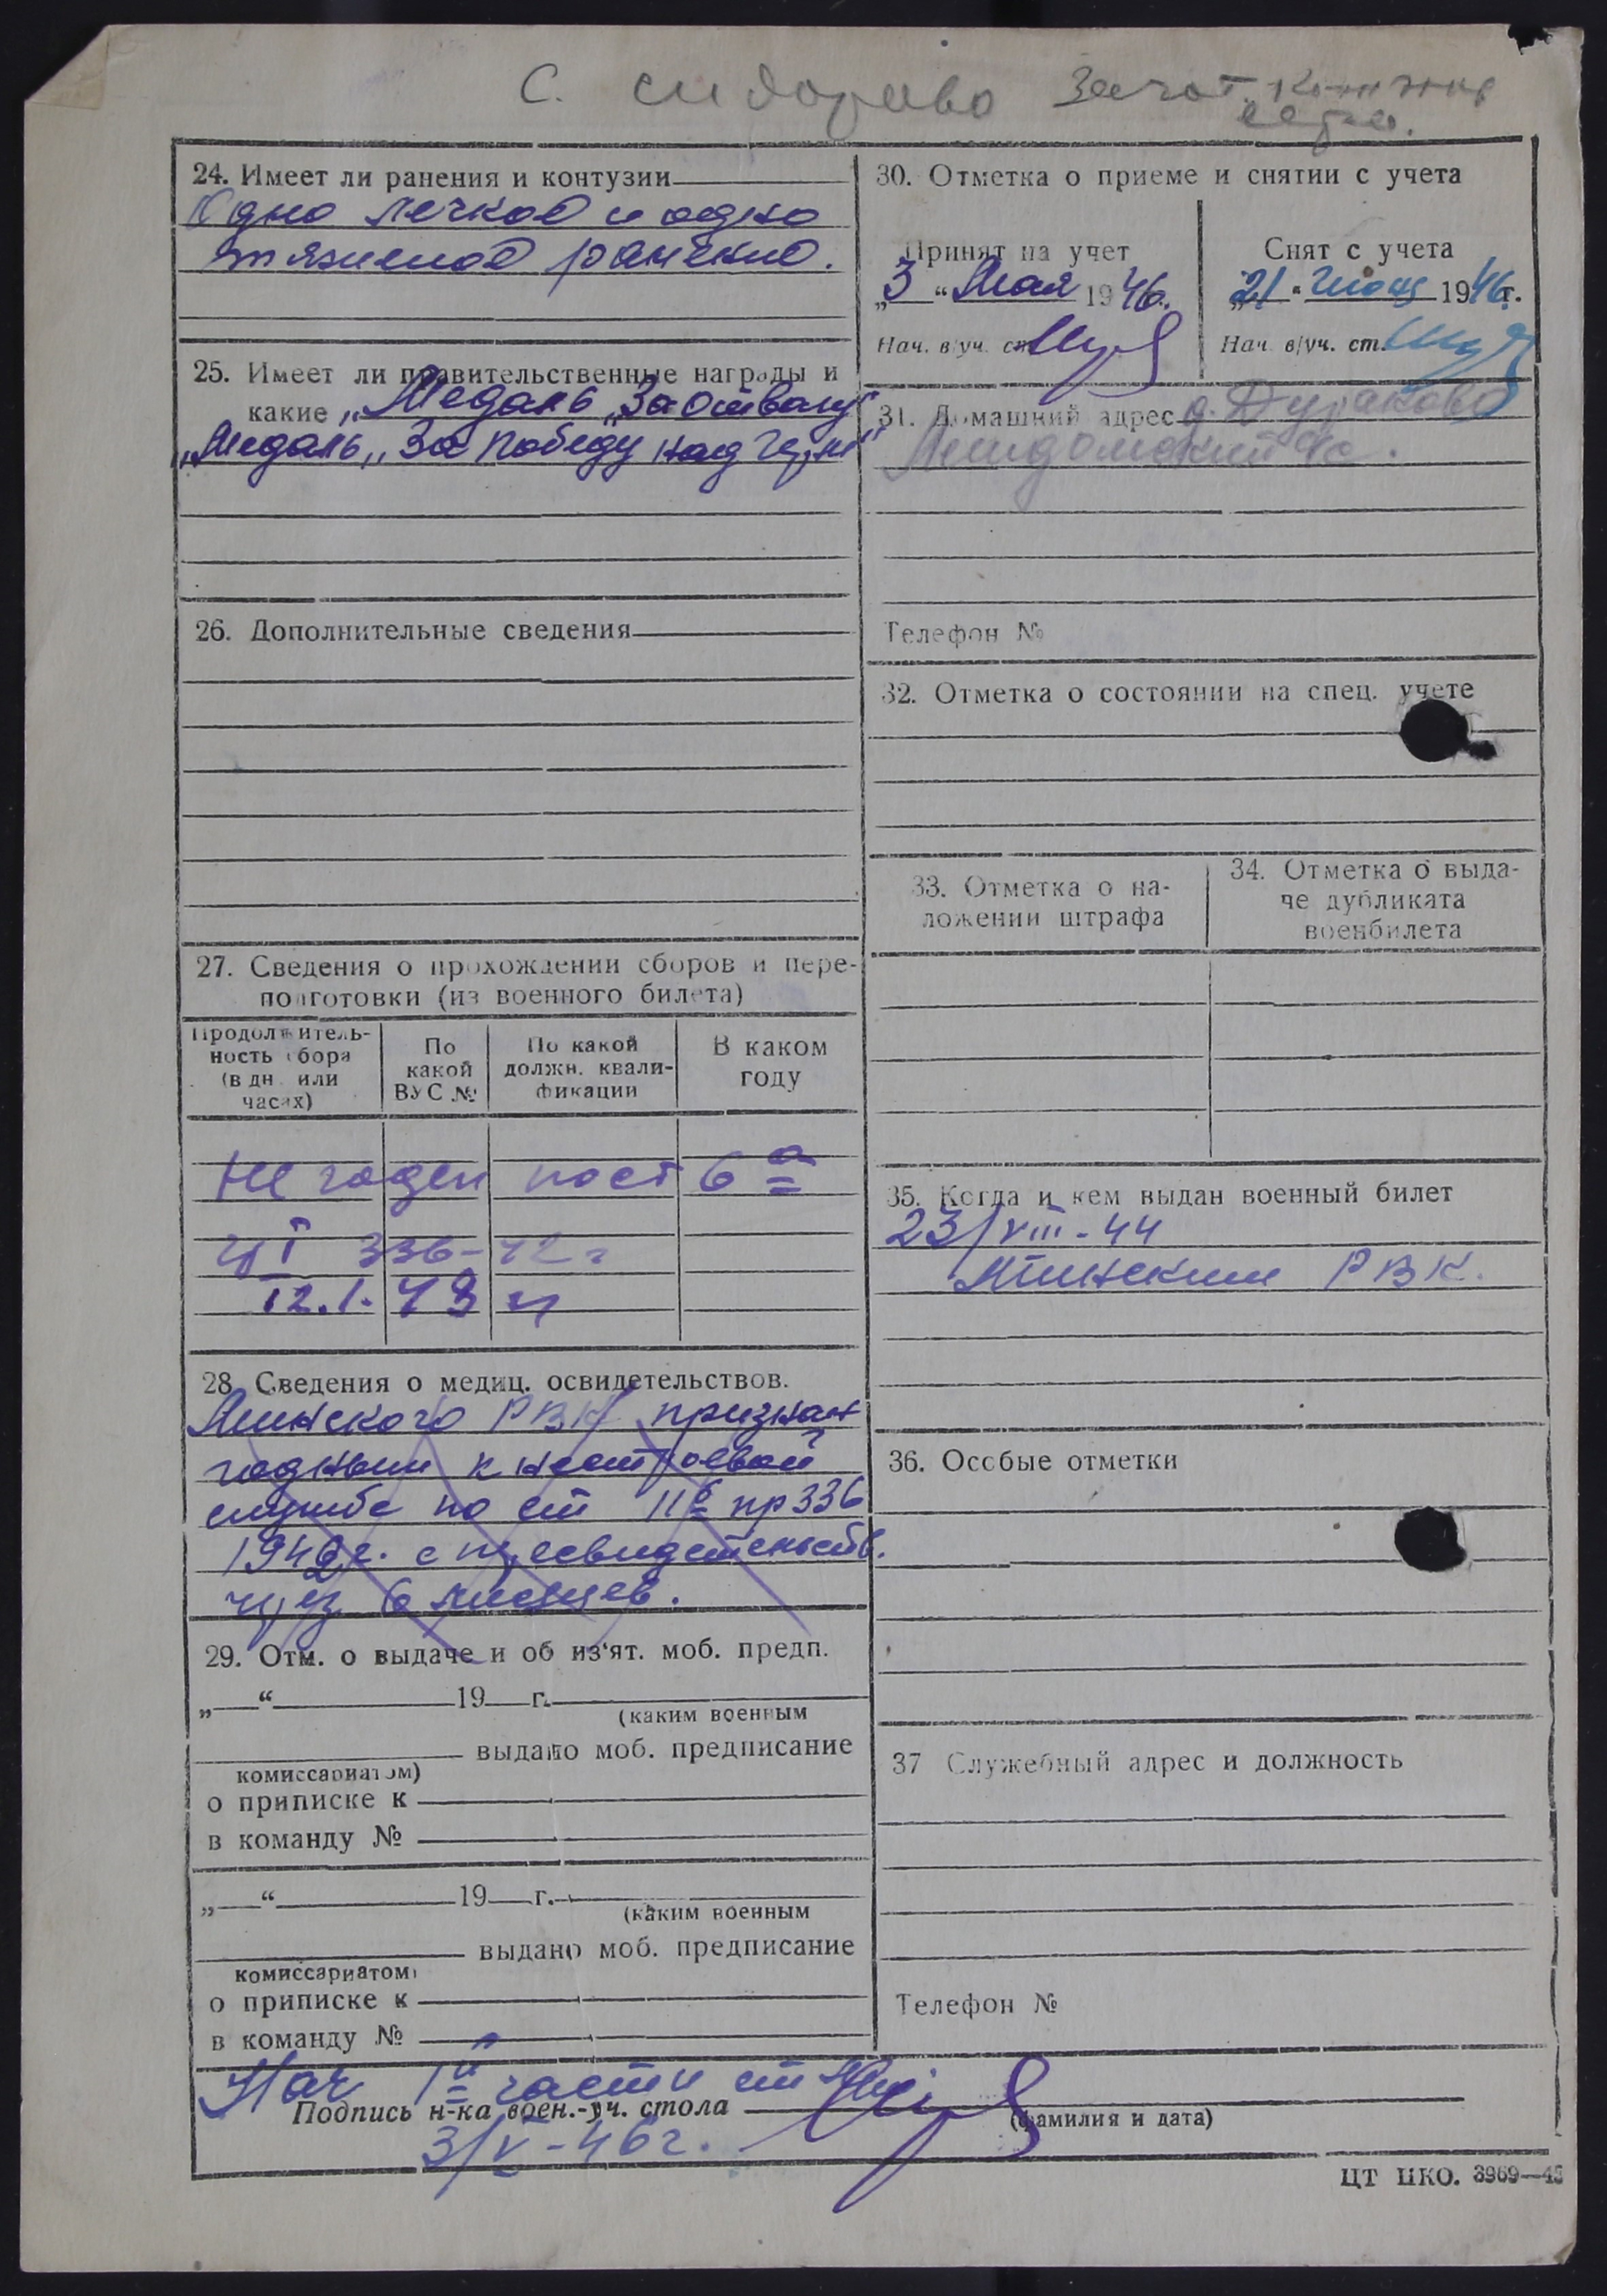 с. Сидорово Загот.
24. Имеет ли ранения и контузии
Одно легкое и одно
тяжелое ранение.
25. Имеет ли правительственные награды и
какие „Медаль „За отвагу"
„Медаль „За победу над Герм"
26. Дополнительные сведения
27. Сведения о прохождении сборов и пере-
подготовки (из военного билета)
Продолжитель-
ность сбора
(в дн. или
часах)
По
какой
ВУС №
По какой
должн. квали-
фикации
В каком
году
Не годен пост 6 а
гр I 336-42 г
12.1.48 г
28. Сведения о медиц. освидетельствов.
РВК признан
годным к нестроевой
службе по ст 11б пр 336
1942г. с переосвидетельств.
через 6 месяцев.
29. Отм. о выдаче и об из'ят. моб. предп.
„ “ 19 г.
(каким военным
выдано моб. предписание
комиссариатом)
о приписке к
в команду №
„ “ 19 г.
(каким военным
выдано моб. предписание
комиссариатом)
о приписке к
в команду №
30. Отметка о приеме и снятии с учета
Принят на учет
„3“ Мая 1946г.
Нач. в/уч. ст.
Снят с учета
„21“ 1946г.
Нач. в/уч. ст.
31. Домашний адрес д. Дураково
с/с.
Телефон №
32. Отметка о состоянии на спец. учете
33. Отметка о на-
ложении штрафа
34. Отметка о выда-
че дубликата
военбилета
35. Когда и кем выдан военный билет
23/VIII-44
РВК.
36. Особые отметки
37 Служебный адрес и должность
Телефон №
Нач 1й части ст
Подпись н-ка воен.-уч. стола
(фамилия и дата)
3/V-46г.
ЦТ НКО. 3969—45